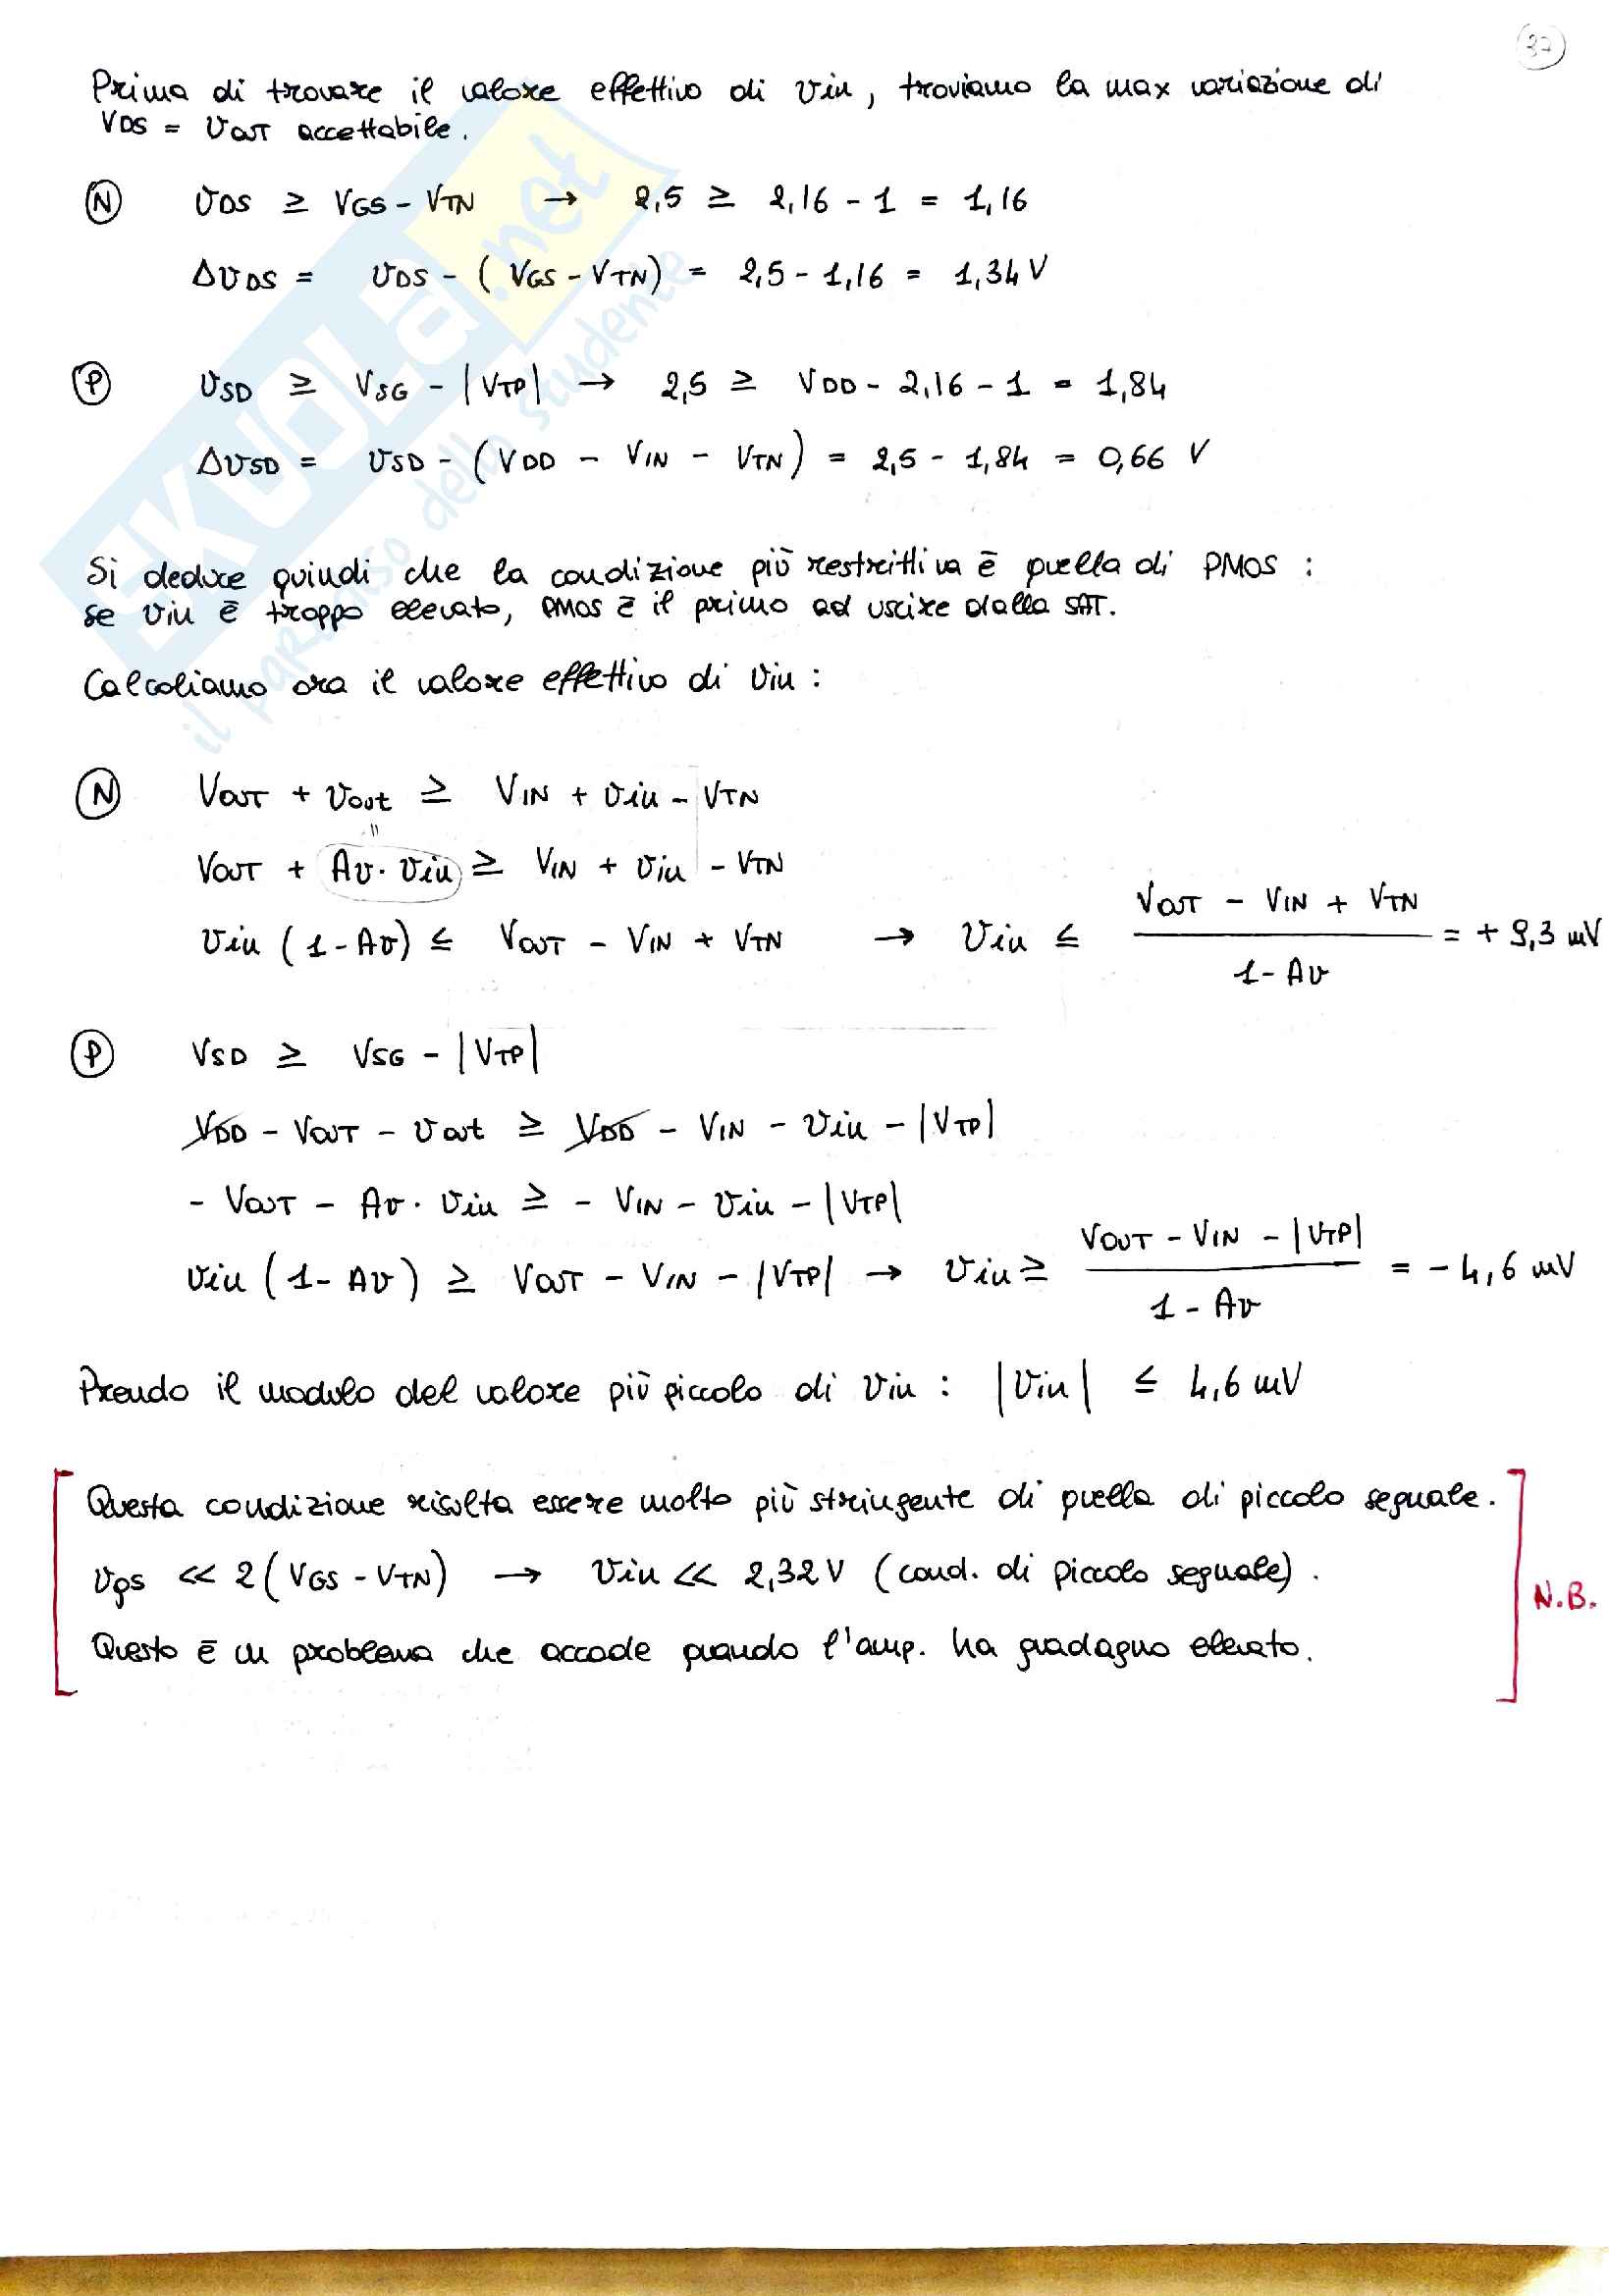 37
Prima di trovare il valore effettivo di vin, troviamo la max variazione di
VDS = VOUT accettabile.
N VDS ≥ VGS - VTN → 2,5 ≥ 2,16 - 1 = 1,16
ΔVDS = VDS - (VGS - VTN) = 2,5 - 1,16 = 1,34 V
P VSD ≥ VSG - |VTP| → 2,5 ≥ VDD - 2,16 - 1 = 1,84
ΔVSD = VSD - (VDD - VIN - VTN) = 2,5 - 1,84 = 0,66 V
Si deduce quindi che la condizione più restrittiva è quella di PMOS :
se vin è troppo elevato, PMOS è il primo ad uscire dalla SAT.
Calcoliamo ora il valore effettivo di vin :
N VOUT + vout ≥ VIN + vin - VTN
"
VOUT + Av · vin ≥ VIN + vin - VTN
vin (1 - Av) ≤ VOUT - VIN + VTN → vin ≤ VOUT - VIN + VTN / 1 - Av = + 9,3 mV
P VSD ≥ VSG - |VTP|
VDD - VOUT - vout ≥ VDD - VIN - vin - |VTP|
- VOUT - Av · vin ≥ - VIN - vin - |VTP|
vin (1 - Av) ≥ VOUT - VIN - |VTP| → vin ≥ VOUT - VIN - |VTP| / 1 - Av = - 4,6 mV
Prendo il modulo del valore più piccolo di vin : |vin| ≤ 4,6 mV
Questa condizione risulta essere molto più stringente di quella di piccolo segnale.
vgs << 2(VGS - VTN) → vin << 2,32 V (cond. di piccolo segnale).
N.B.
Questo è un problema che accade quando l'amp. ha guadagno elevato.
SKUOLA.net
il paradiso dello studente